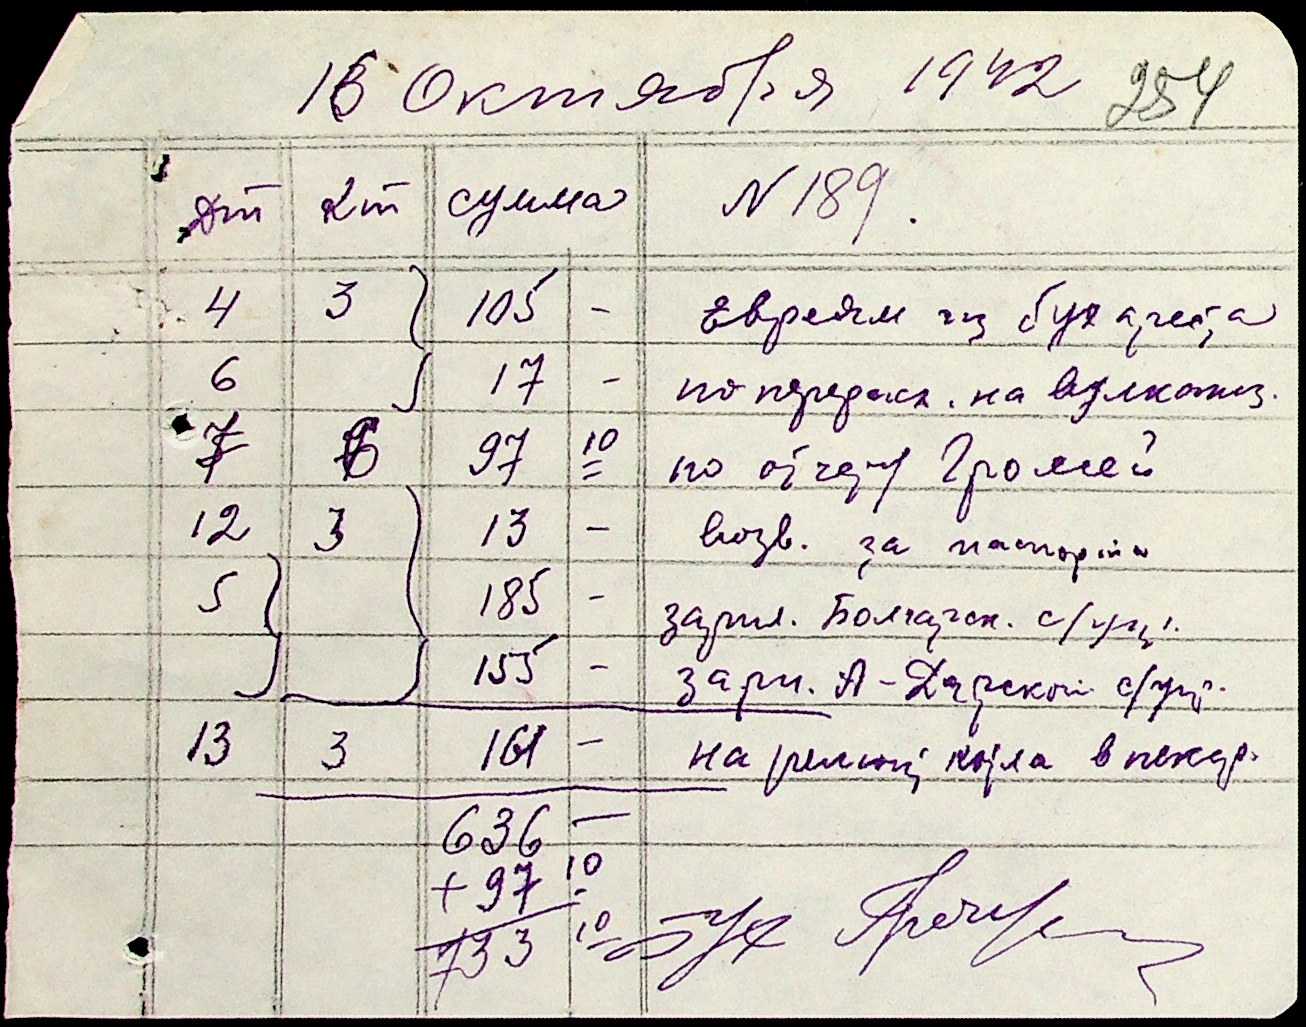 16 Октября 1942 254
Дт Кт сумма N 189.
4 3 105 - Евреям из Бухареста
6 17 - по перераск. на вулканиз.
7 6 97 10 по отчету Громей
12 3 13 - возв. за паспорта
5 185 - зарпл. Болгарск. с/
155 - зарп. А-Дарской с/
13 3 161 - на ремонт котла в пекар.
636 -
+ 97 10
733 10 Бух